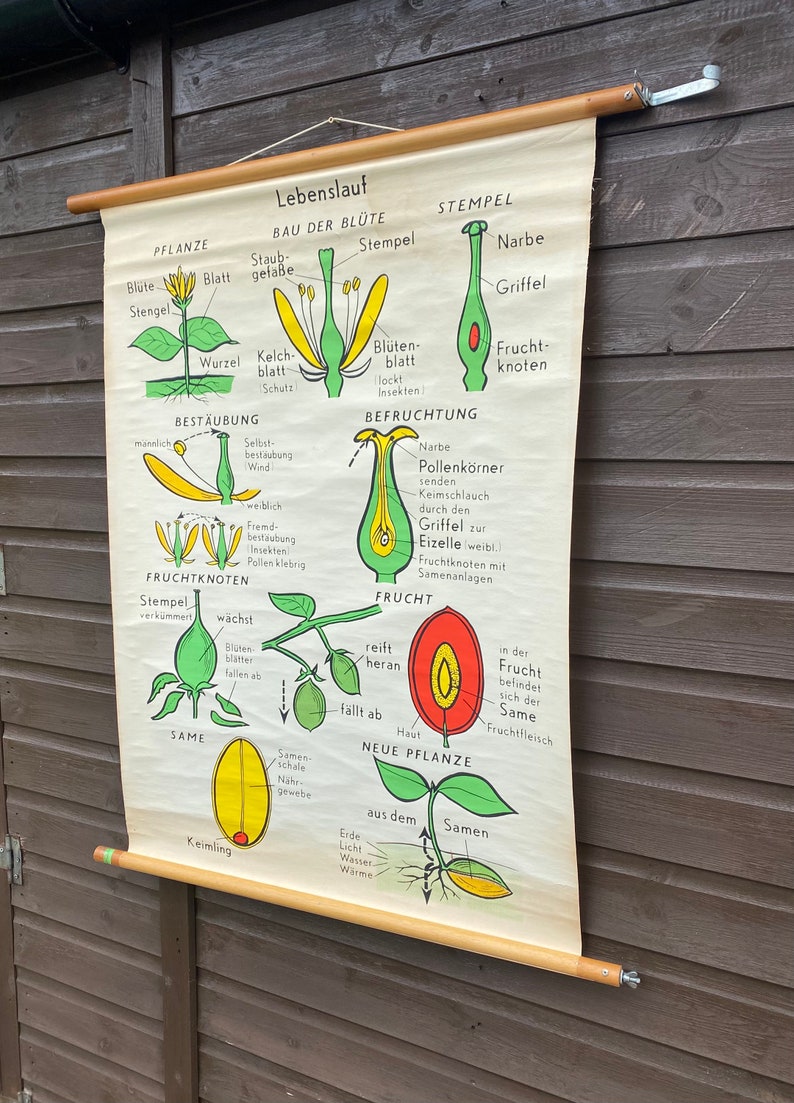 Lebenslauf
PFLANZE
Blüte
Blatt
Stengel
Wurzel
BAU DER BLÜTE
Staub-
gefäße
Stempel
Kelch-
blatt
(Schutz)
Blüten-
blatt
(lockt
Insekten)
STEMPEL
Narbe
Griffel
Frucht-
knoten
BESTÄUBUNG
männlich
Selbst-
bestäubung
(Wind)
weiblich
Fremd-
bestäubung
(Insekten)
Pollen klebrig
BEFRUCHTUNG
Narbe
Pollenkörner
senden
Keimschlauch
durch den
Griffel zur
Eizelle (weibl.)
Fruchtknoten mit
Samenanlagen
FRUCHTKNOTEN
Stempel
verkümmert
wächst
Blüten-
blätter
fallen ab
FRUCHT
reift
heran
fällt ab
in der
Frucht
befindet
sich der
Same
Fruchtfleisch
Haut
SAME
Samen-
schale
Nähr-
gewebe
Keimling
NEUE PFLANZE
aus dem
Samen
Erde
Licht
Wasser
Wärme